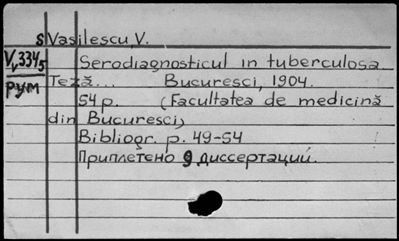 s Vasilescu, V.
V,334₅ Serodiagnosticul in tuberculosa
рум Teză... Bucuresci, 1904.
54 p. (Facultatea de medicină
din Bucuresci)
Bibliogr. p. 49-54
Приплетено 9 диссертаций.